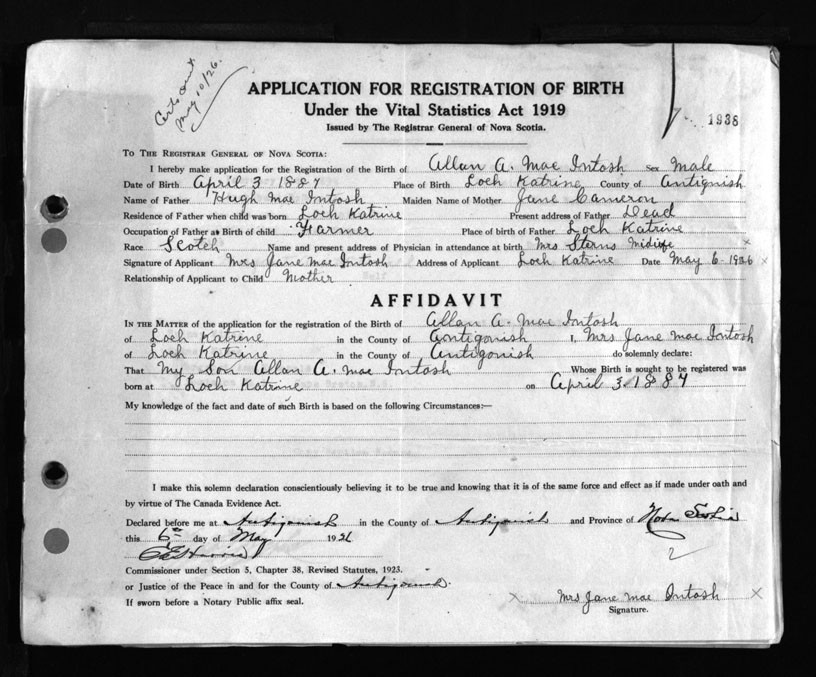 Certs sent
May 10/26.
APPLICATION FOR REGISTRATION OF BIRTH
Under the Vital Statistics Act 1919
Issued by The Registrar General of Nova Scotia.
1938
TO THE REGISTRAR GENERAL OF NOVA SCOTIA:
I hereby make application for the Registration of the Birth of Allan A. Mac Intosh Sex Male
Date of Birth April 3 1887 Place of Birth Loch Katrine County of Antignish
Name of Father Hugh Mac Intosh Maiden Name of Mother Jane Cameron
Residence of Father when child was born Loch Katrine Present address of Father Dead
Occupation of Father at Birth of child Farmer Place of birth of Father Loch Katrine
Race Scotch Name and present address of Physician in attendance at birth Mrs Sterns Midiife x
Signature of Applicant Mrs Jane Mac Intosh Address of Applicant Loch Katrine Date May 6-1926 x
Relationship of Applicant to Child Mother
AFFIDAVIT
IN THE MATTER of the application for the registration of the Birth of Allan A. Mac Intosh
of Loch Katrine in the County of Antigonish I, Mrs Jane Mac Intosh
of Loch Katrine in the County of Antigonish do solemnly declare:
That My Son Allan A. Mac Intosh Whose Birth is sought to be registered was
born at Loch Katrine on April 3. 1887
My knowledge of the fact and date of such Birth is based on the following Circumstances:—
I make this solemn declaration conscientiously believing it to be true and knowing that it is of the same force and effect as if made under oath and
by virtue of The Canada Evidence Act.
Declared before me at Antigonish in the County of Antigonish and Province of Nova Scotia
this 6th day of May 1926
2
Commissioner under Section 5, Chapter 38, Revised Statutes, 1923.
or Justice of the Peace in and for the County of Antigonish.
If sworn before a Notary Public affix seal.
x Mrs Jane Mac Intosh x
Signature.